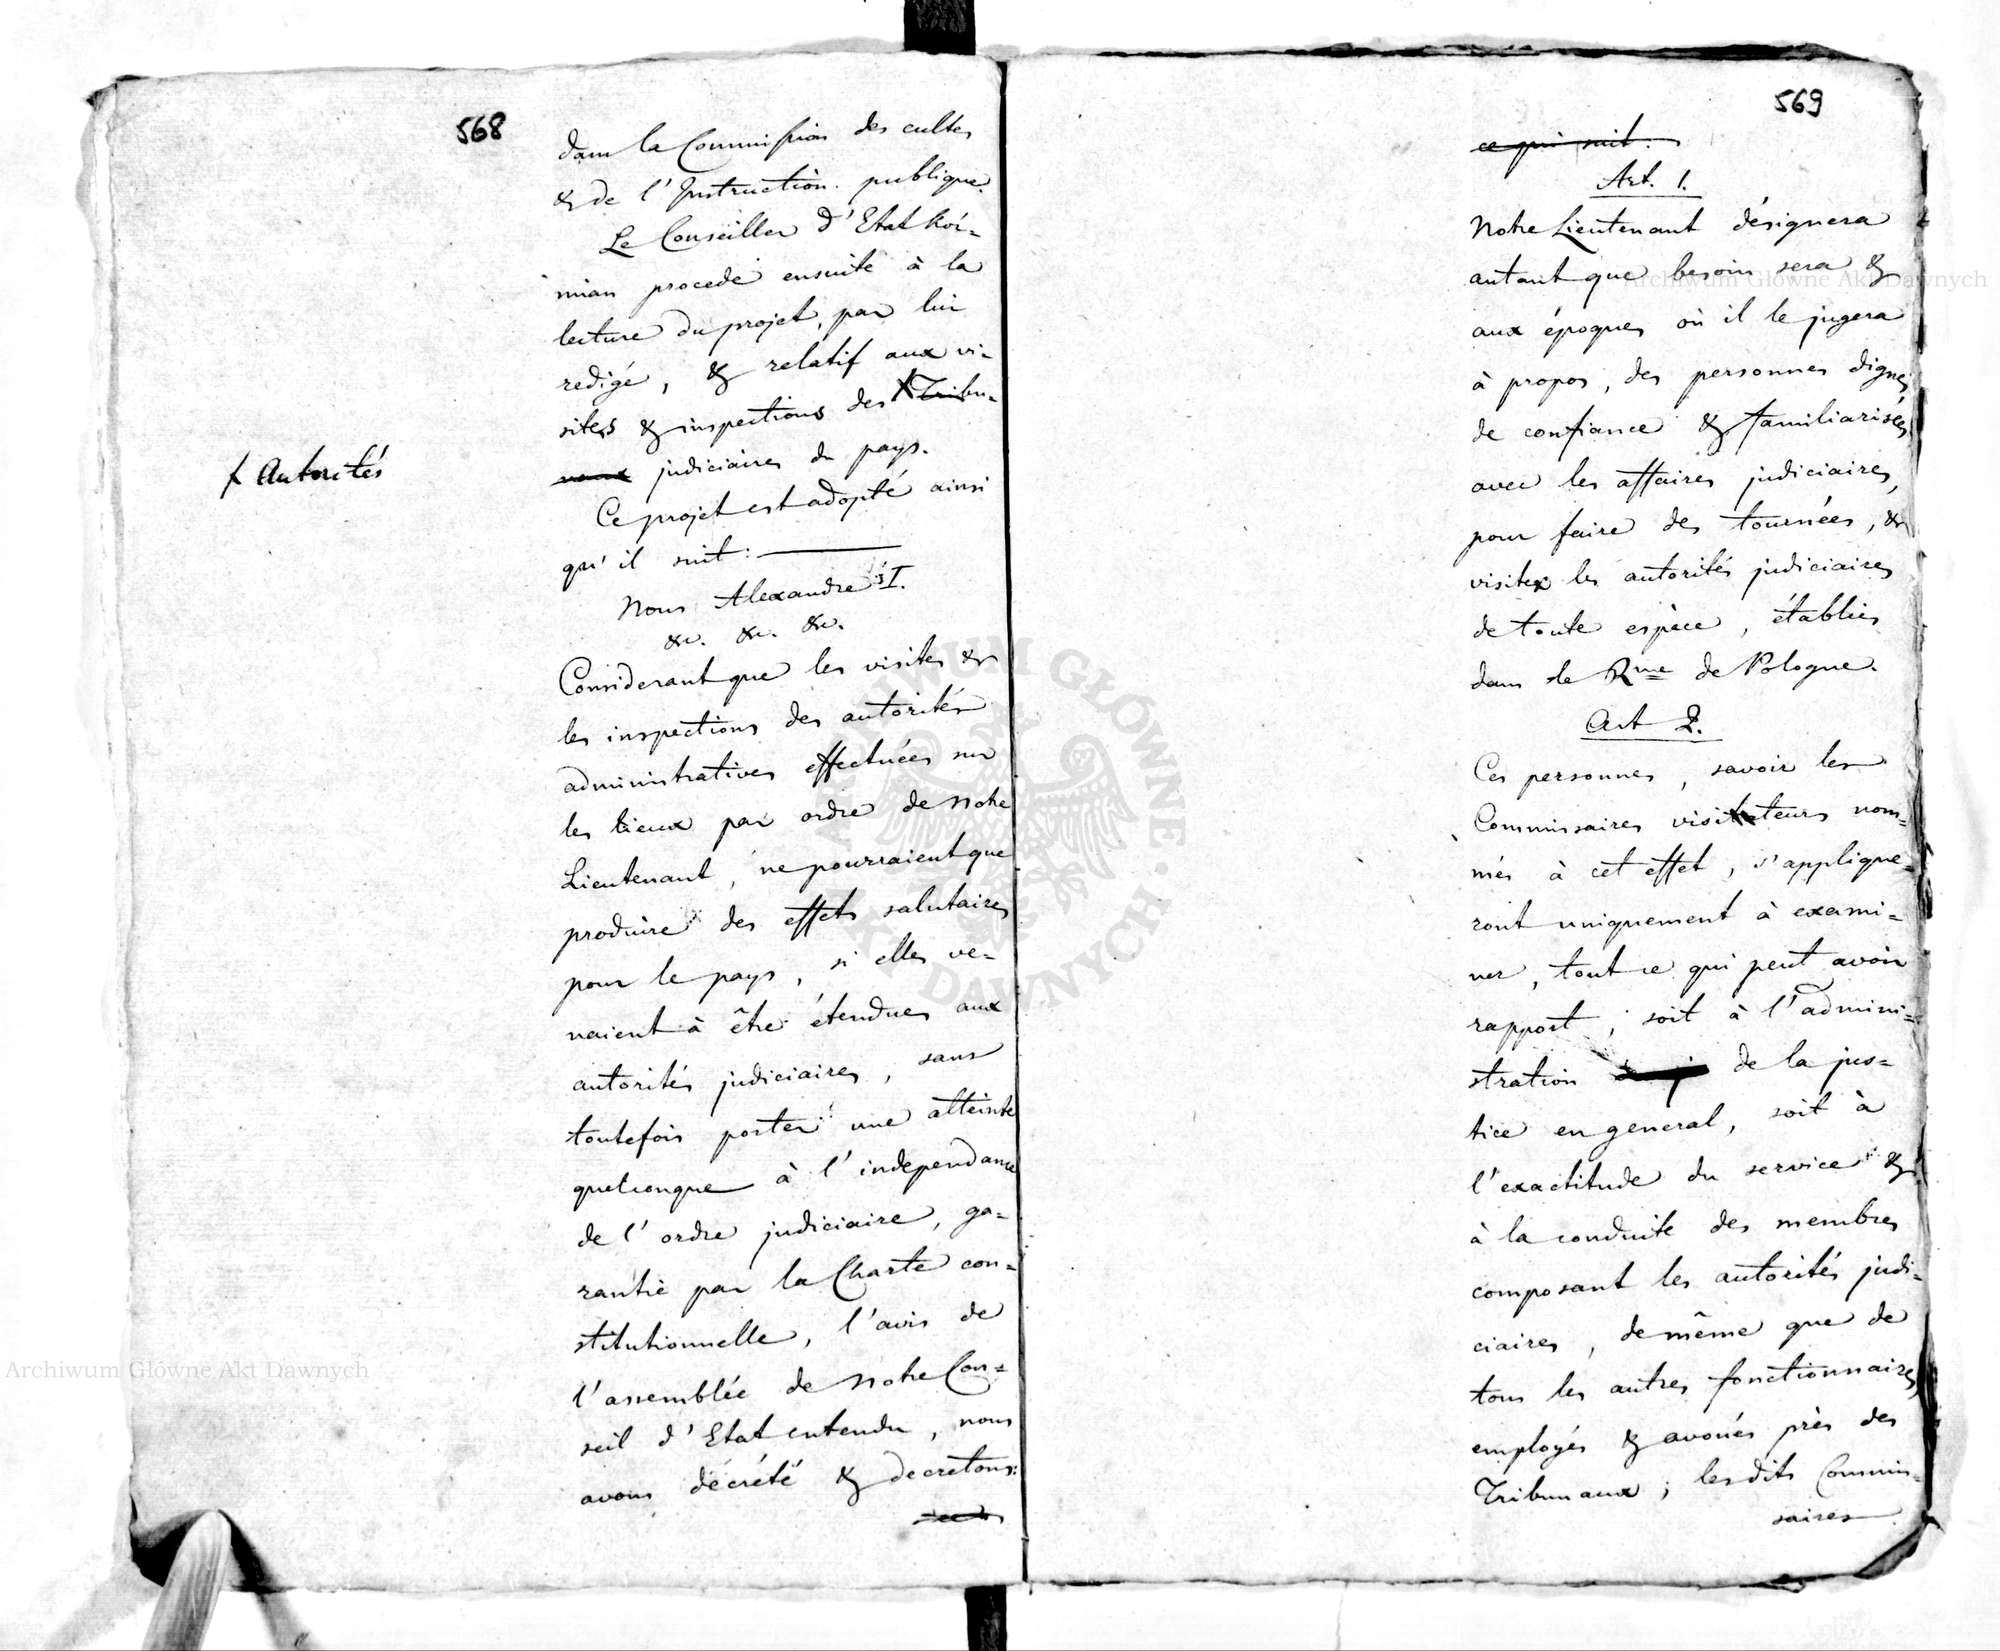 568
dans la Commission des cultes
& de l'Instruction publique.
Le Conseiller d'Etat Koź-
mian procede ensuite à la
lecture du projet, par lui
redigé, & relatif aux vi-
sites & inspections des ✗ Tribu-
naux judiciaires du pays.
✗ Autorités
Ce projet est adopté ainsi
qu'il suit:
Nous Alexandre I.
&c. &c. &c.
Considerant que les visites &
les inspections des autorités
administratives effectuées sur
les lieux par ordre de Notre
Lieutenant, ne pourraient que
produire des effets salutaires
pour le pays, si elles ve-
naient à être étendues aux
autorités judiciaires, sans
toutefois porter une atteinte
quelconque à l'independance
de l'ordre judiciaire, ga-
rantie par la Charte con-
stitutionnelle, l'avis de
l'assemblée de Notre Con-
seil d'Etat entendu, nous
avons décrété & decretons:
569
ce qui suit:
Art. 1.
Notre Lieutenant désignera
autant que besoin sera &
aux époques où il le jugera
à propos, des personnes dignes
de confiance & familiarisées
avec les affaires judiciaires,
pour faire des tournées, &
visiter les autorités judiciaires
de toute espèce, établies
dans le Rme de Pologne.
Art 2.
Ces personnes, savoir les
Commissaires visitateurs nom-
més à cet effet, s'applique-
ront uniquement à exami-
ner, tout ce qui peut avoir
rapport, soit à l'admini-
stration de la jus-
tice en general, soit à
l'exactitude du service &
à la conduite des membres
composant les autorités judi-
ciaires, de même que de
tous les autres fonctionnaires,
employés & avoués près des
Tribunaux; lesdits Commis-
saires
Archiwum Główne Akt Dawnych
Archiwum Główne Akt Dawnych
ARCHIWUM GŁÓWNE AKT DAWNYCH